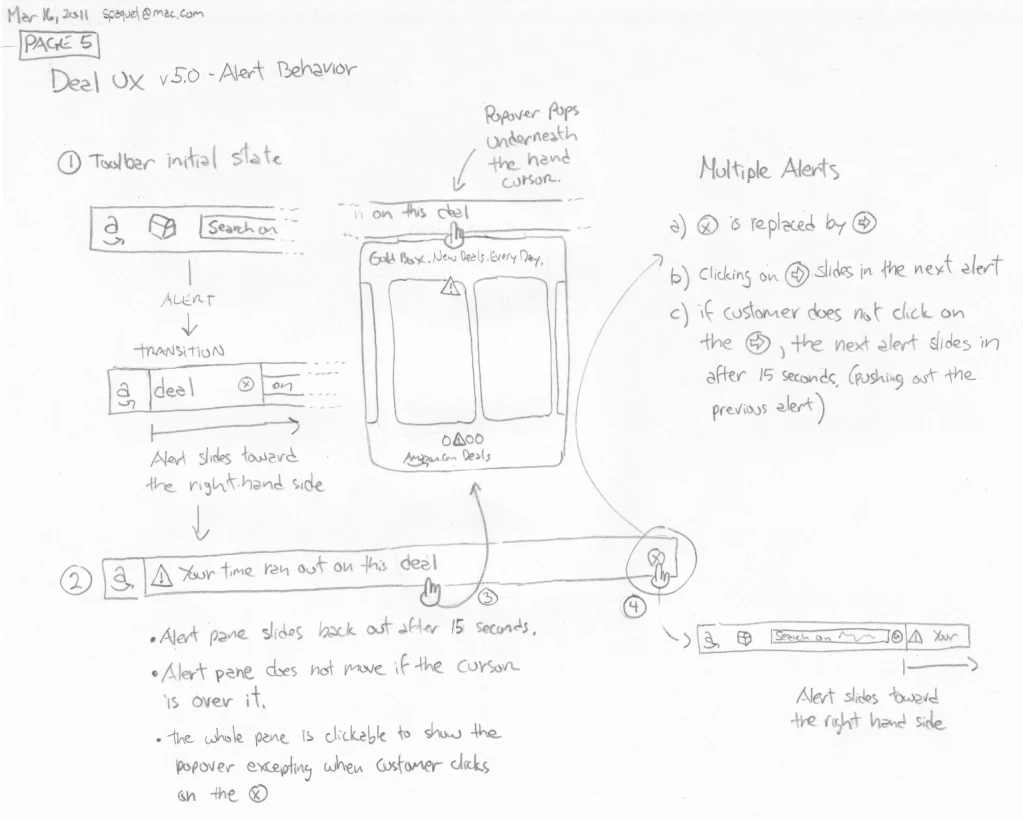 Mar 16, 2011 spaquel@mac.com
PAGE 5
Deal UX v5.0 - Alert Behavior
① Toolbar initial state
a Search on
ALERT
TRANSITION
a deal ⓧ on
Alert slides toward
the right-hand side
Popover Pops
underneath
the hand
cursor.
on this deal
Gold Box. New Deals. Every Day.
Amazon.com Deals
Multiple Alerts
a) ⓧ is replaced by ⇨
b) Clicking on ⇨ slides in the next alert
c) if customer does not click on
the ⇨, the next alert slides in
after 15 seconds. (pushing out the
previous alert)
② a ⚠ Your time ran out on this deal ⓧ
③
④
• Alert pane slides back out after 15 seconds.
• Alert pane does not move if the cursor
is over it.
• the whole pane is clickable to show the
popover excepting when customer clicks
on the ⓧ
a Search on ⚠ Your
Alert slides toward
the right hand side